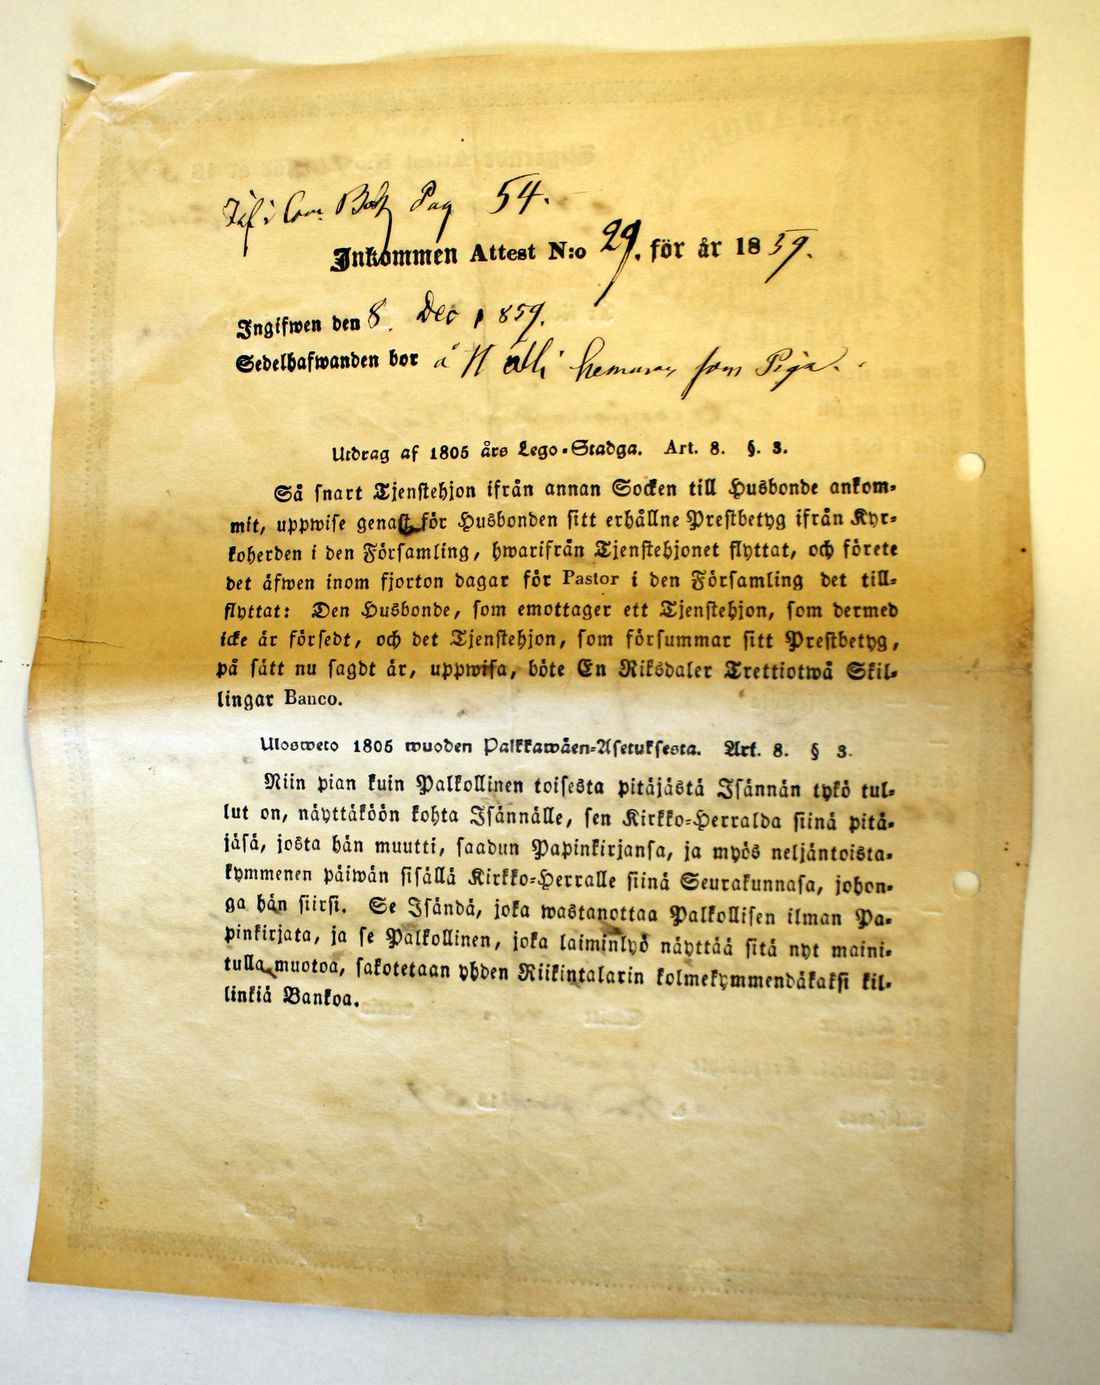 Pag 54.
Inkommen Attest N:o 29. för år 1859.
Ingifwen den 8. Dec 1859.
Sedelhafwanden bor å Hälli hemman som Piga.
Utdrag af 1805 års Lego-Stadga. Art. 8. §. 3.
Så snart Tjenstehjon ifrån annan Socken till Husbonde ankom-
mit, uppwise genast för Husbonden sitt erhållne Prestbetyg ifrån Kyr-
koherden i den Församling, hwarifrån Tjenstehjonet flyttat, och förete
det äfwen inom fjorton dagar för Pastor i den Församling det till-
flyttat: Den Husbonde, som emottager ett Tjenstehjon, som dermed
icke är försedt, och det Tjenstehjon, som försummar sitt Prestbetyg,
på sätt nu sagdt är, uppwisa, böte En Riksdaler Trettiotwå Skil-
lingar Banco.
Ulosweto 1805 wuoden Palkkawäen-Asetuksesta. Art. 8. § 3.
Niin pian kuin Palkollinen toisesta pitäjästä Isännän tykö tul-
lut on, näyttäköön kohta Isännälle, sen Kirkko-Herralda siinä pitä-
jäsä, josta hän muutti, saadun Papinkirjansa, ja myös neljäntoista-
kymmenen päiwän sisällä Kirkko-Herralle siinä Seurakunnasa, johon-
ga hän siirsi. Se Isändä, joka wastanottaa Palkollisen ilman Pa-
pinkirjata, ja se Palkollinen, joka laiminlyö näyttää sitä nyt maini-
tulla muotoa, sakotetaan yhden Riikintalarin kolmekymmendäkaksi kil-
linkiä Bankoa.